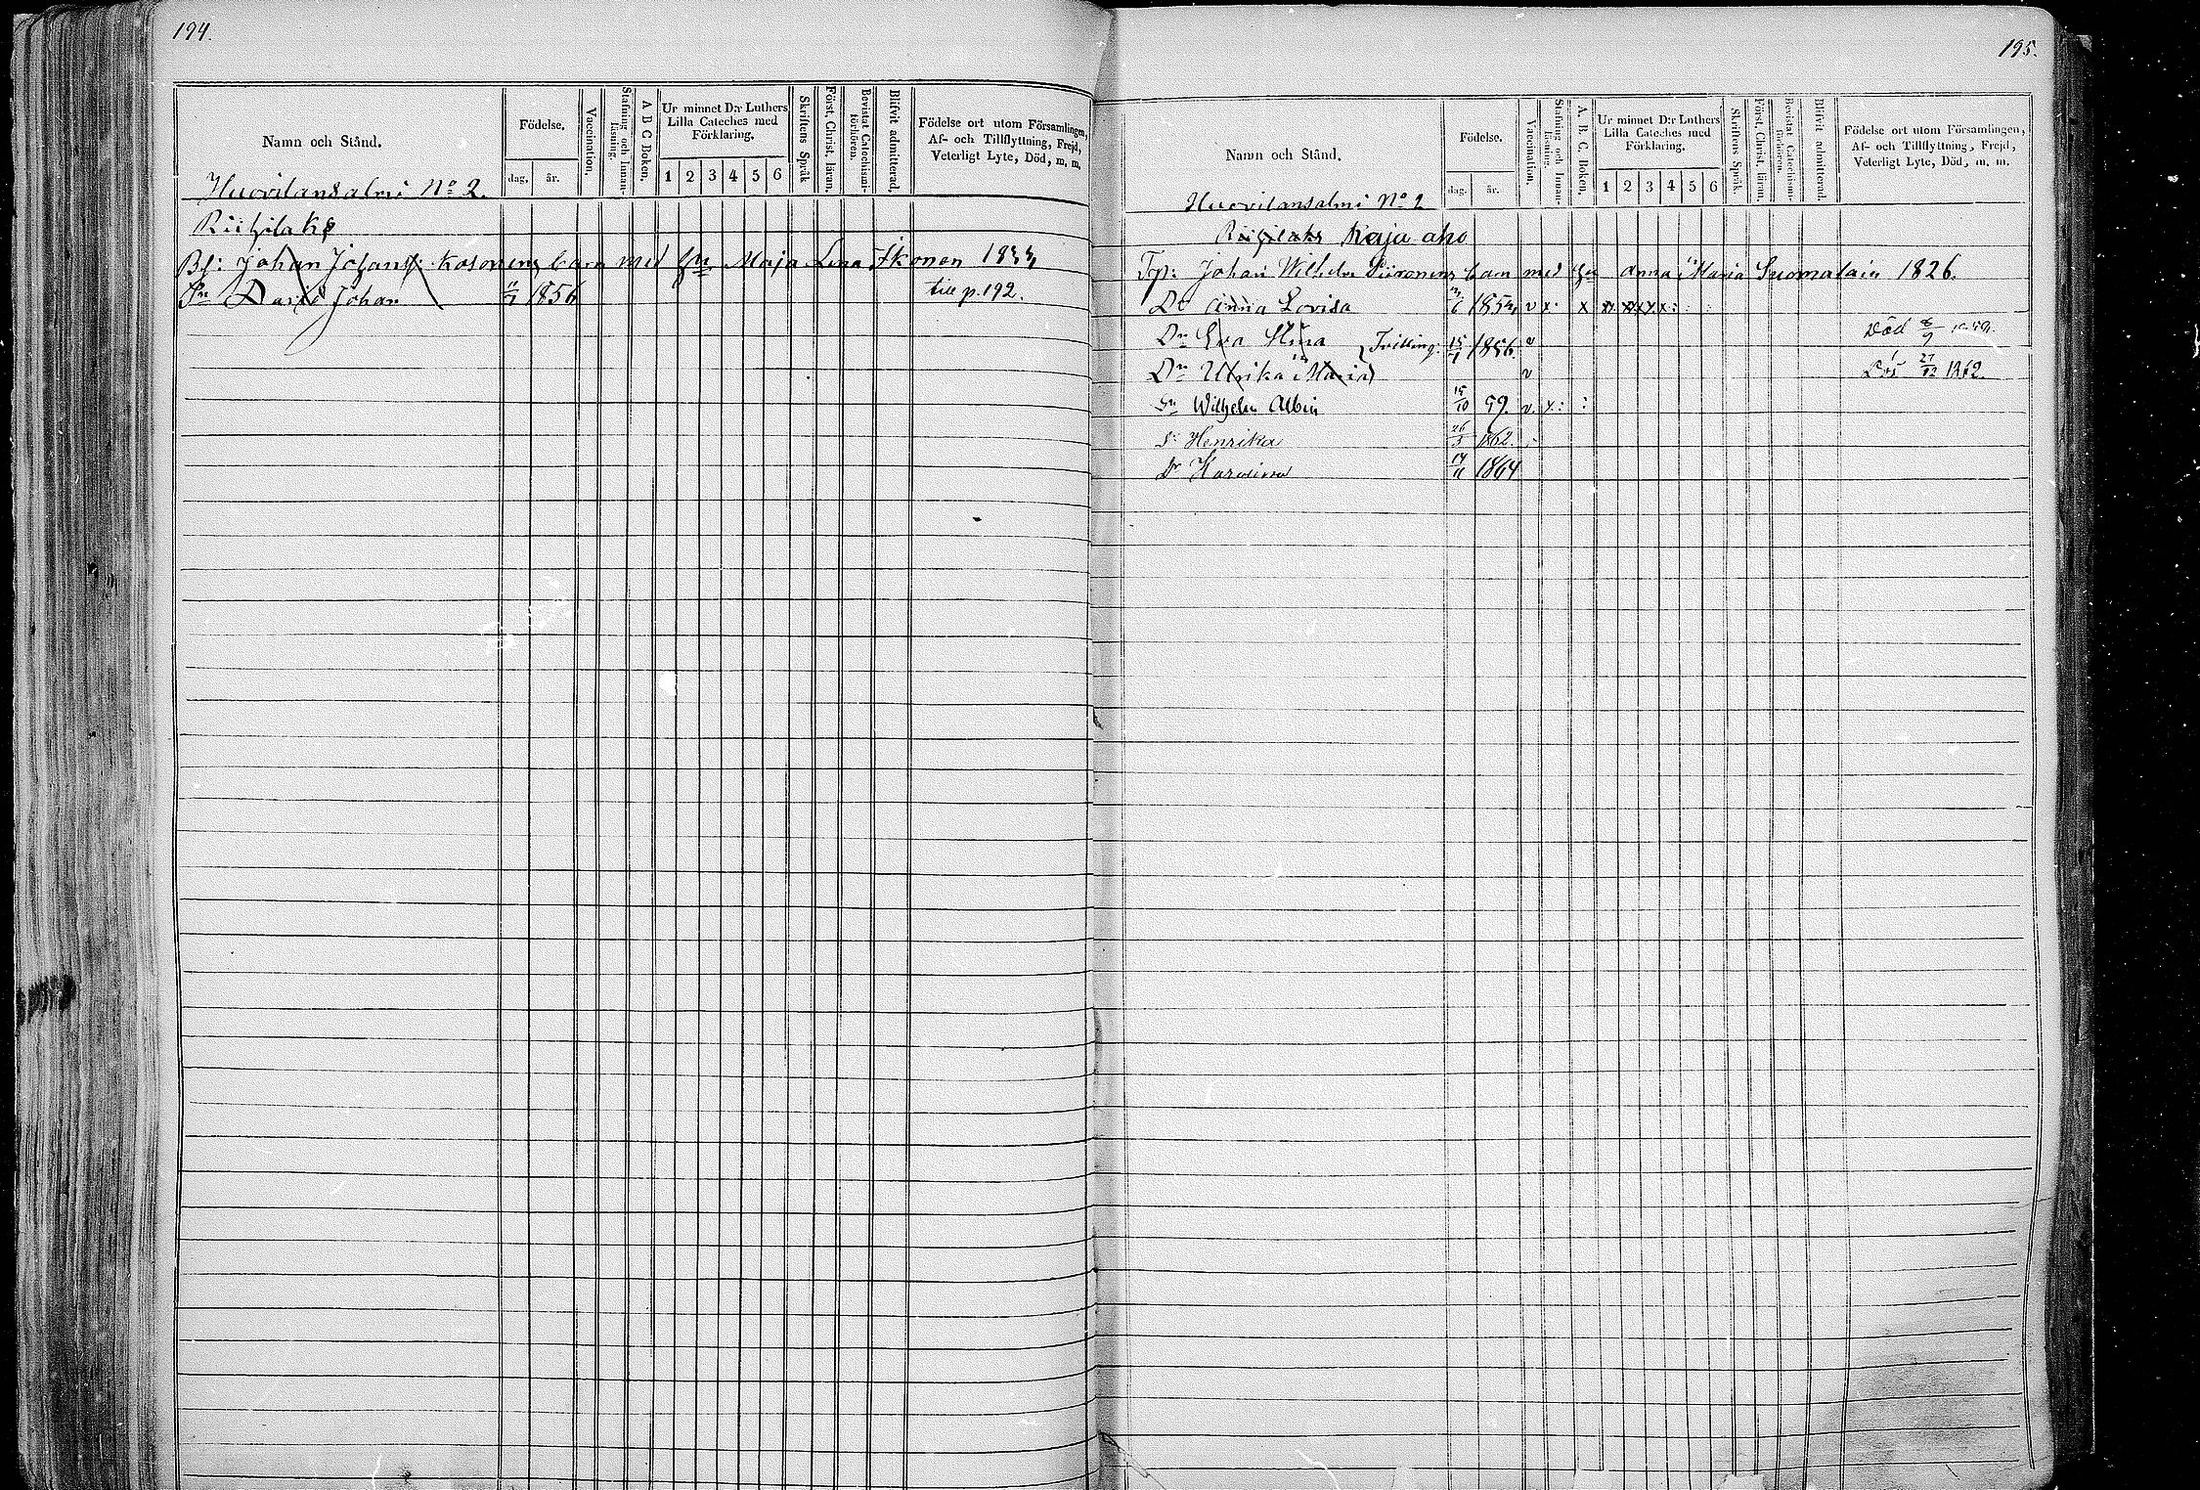 194.
Namn och Stånd.
Födelse.
dag. år.
Vaccination.
Stafning och Innan-läsning.
A B C Boken.
Ur minnet D:r Luthers
Lilla Cateches med
Förklaring.
1 2 3 4 5 6
Skriftens Språk
Först. Christ. läran.
Bevistat Catechismi-förhören.
Blifvit admitterad.
Födelse ort utom Församlingen,
Af- och Tillflyttning, Frejd,
Veterligt Lyte, Död, m. m.
Huovilansalmi No 2.
Johan Kosonens barn med Hu Maja Lena Ikonen 1833
Sn David Johan 11/7 1856 till p. 192.
195.
Namn och Stånd.
Födelse.
dag. år.
Vaccination.
Stafning och Innan-läsning.
A. B. C. Boken.
Ur minnet D:r Luthers
Lilla Cateches med
Förklaring.
1 2 3 4 5 6
Skriftens Språk.
Först. Christ. läran.
Bevistat Catechismi-förhören.
Blifvit admitterad.
Födelse ort utom Församlingen,
Af- och Tillflyttning, Frejd,
Veterligt Lyte, Död, m. m.
Huovilansalmi No 2
Kaja aho
Johan Wilhelm Siironens barn med Hu Anna Maria Suomalain 1826.
Dr Anna Lovisa 1854 v x x
Dr Eva Stina Tvilling. 15/1 1856. v Död
Dr Ulrika Maria v Död 27/12 1862.
Sn Wilhelm Albin 15/10 59. v. x
Henrika 26/5 1862.
Dr Karolina 14/11 1864